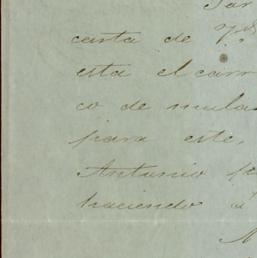 carta de
esta el carr
co de mulas
para este,
Antonio
haciendo á